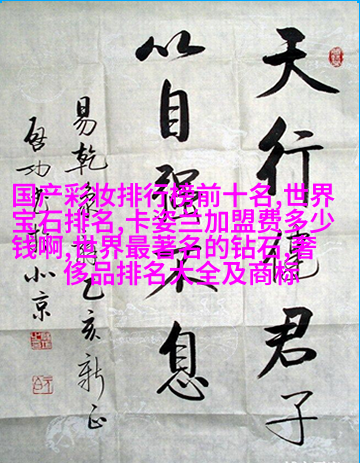 天行健君子
以自强不息
易乾
乙亥新正
启功
北京
国产彩妆排行榜前十名,世界
宝石排名,卡姿兰加盟费多少
钱啊,世界最著名的钻石,奢
侈品排名大全及商标